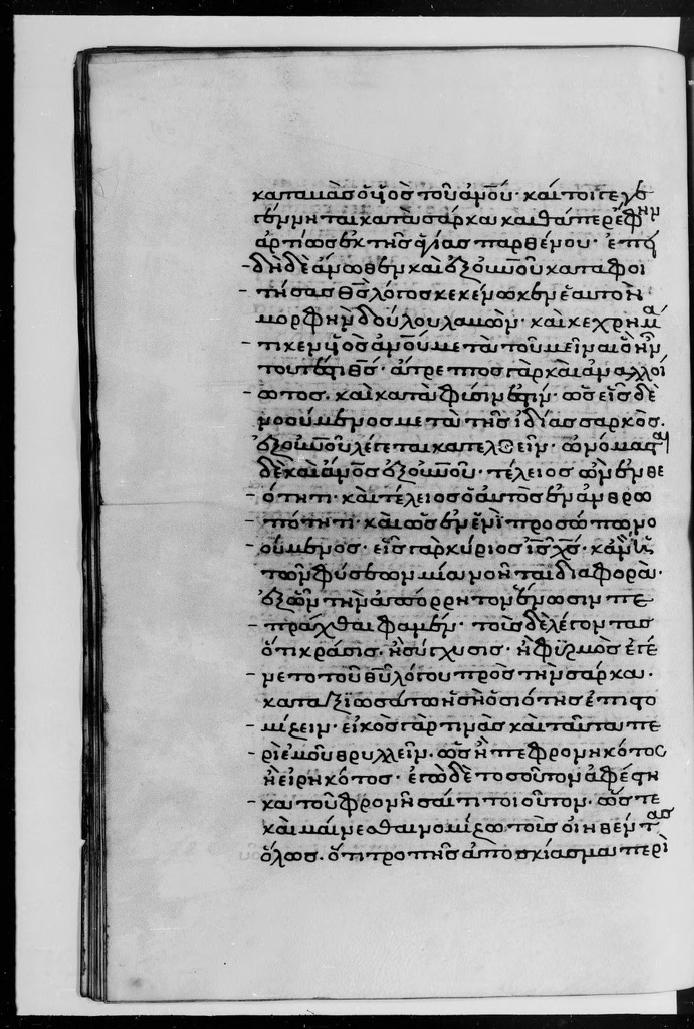 καταμὰς ὁ υἱὸς τοῦ ἀνου· καί τοι γεγε
γέννηται κατὰ σάρκα καθάπερ ἔφην
ἀρτίως ἐκ τῆς ἁγίας παρθένου· ἐπει
δὴ δὲ ἄνωθεν καὶ ἐξ οὐνοῦ καταφοι
τήσας θς λόγος κεκένωκεν ἑαυτὸν
μορφὴν δούλου λαβών· καὶ κεχρημά
τικεν υἱὸς ἀνου μετὰ τοῦ μεῖναι ὃ ἦν
τουτέστι θς· ἄτρεπτος γὰρ καὶ ἀναλλοί
ωτος. καὶ κατὰ φύσιν ἐστίν· ὡς εἷς δὲ
νοούμενος μετὰ τῆς ἰδίας σαρκὸς.
ἐξ οὐνοῦ λέγεται κατελθεῖν· ὠνόμασται
δὲ καὶ ἀνος ἐξ οὐνοῦ· τέλειος ὢν ἐν θε
ότητι· καὶ τέλειος ὁ αὐτὸς ἐν ἀνθρω
πότητι· καὶ ὡς ἐν ἑνὶ προσώπω νο
ούμενος· εἷς γὰρ κύριος ις χς· κἂν ἡ
τῶν φύσεων μὴ ἀγνοῆται διαφορὰ·
ἐξ ὧν τὴν ἀπόρρητον ἕνωσιν πε
πρᾶχθαι φαμέν· τοὺς δὲ λέγοντας
ὅτι κρᾶσις. ἢ σύγχυσις· ἢ φυρμὸς ἐγέ
νετο τοῦ θυ λόγου πρὸς τὴν σάρκα·
καταξιωσάτω ἡ σὴ ὁσιότης ἐπιστο
μίζειν· εἰκὸς γὰρ τινὰς καὶ ταῦτα πε
ρὶ ἐμοῦ θρυλλεῖν. ὡς ἢ πεφρονηκότος
ἢ εἰρηκότος· ἐγὼ δὲ τοσοῦτον ἀφέστη
κα τοῦ φρονῆσαί τι τοιοῦτον. ὥστε
καὶ μαίνεσθαι νομίζω τοὺς οἰηθέντας
ὅλως. ὅτι τροπῆς ἀποσκίασμα περὶ